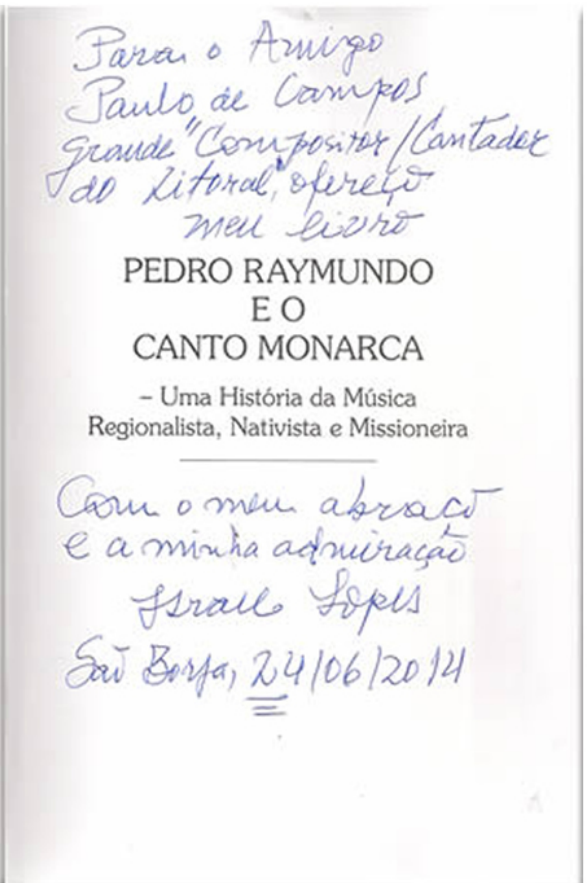 Para o Amigo
Paulo de Campos,
grande "Compositor/Cantador
do Litoral", ofereço
meu livro
PEDRO RAYMUNDO
E O
CANTO MONARCA
– Uma História da Música
Regionalista, Nativista e Missioneira
Com o meu abraço
e a minha admiração
Israel Lopes
São Borja, 24/06/2014